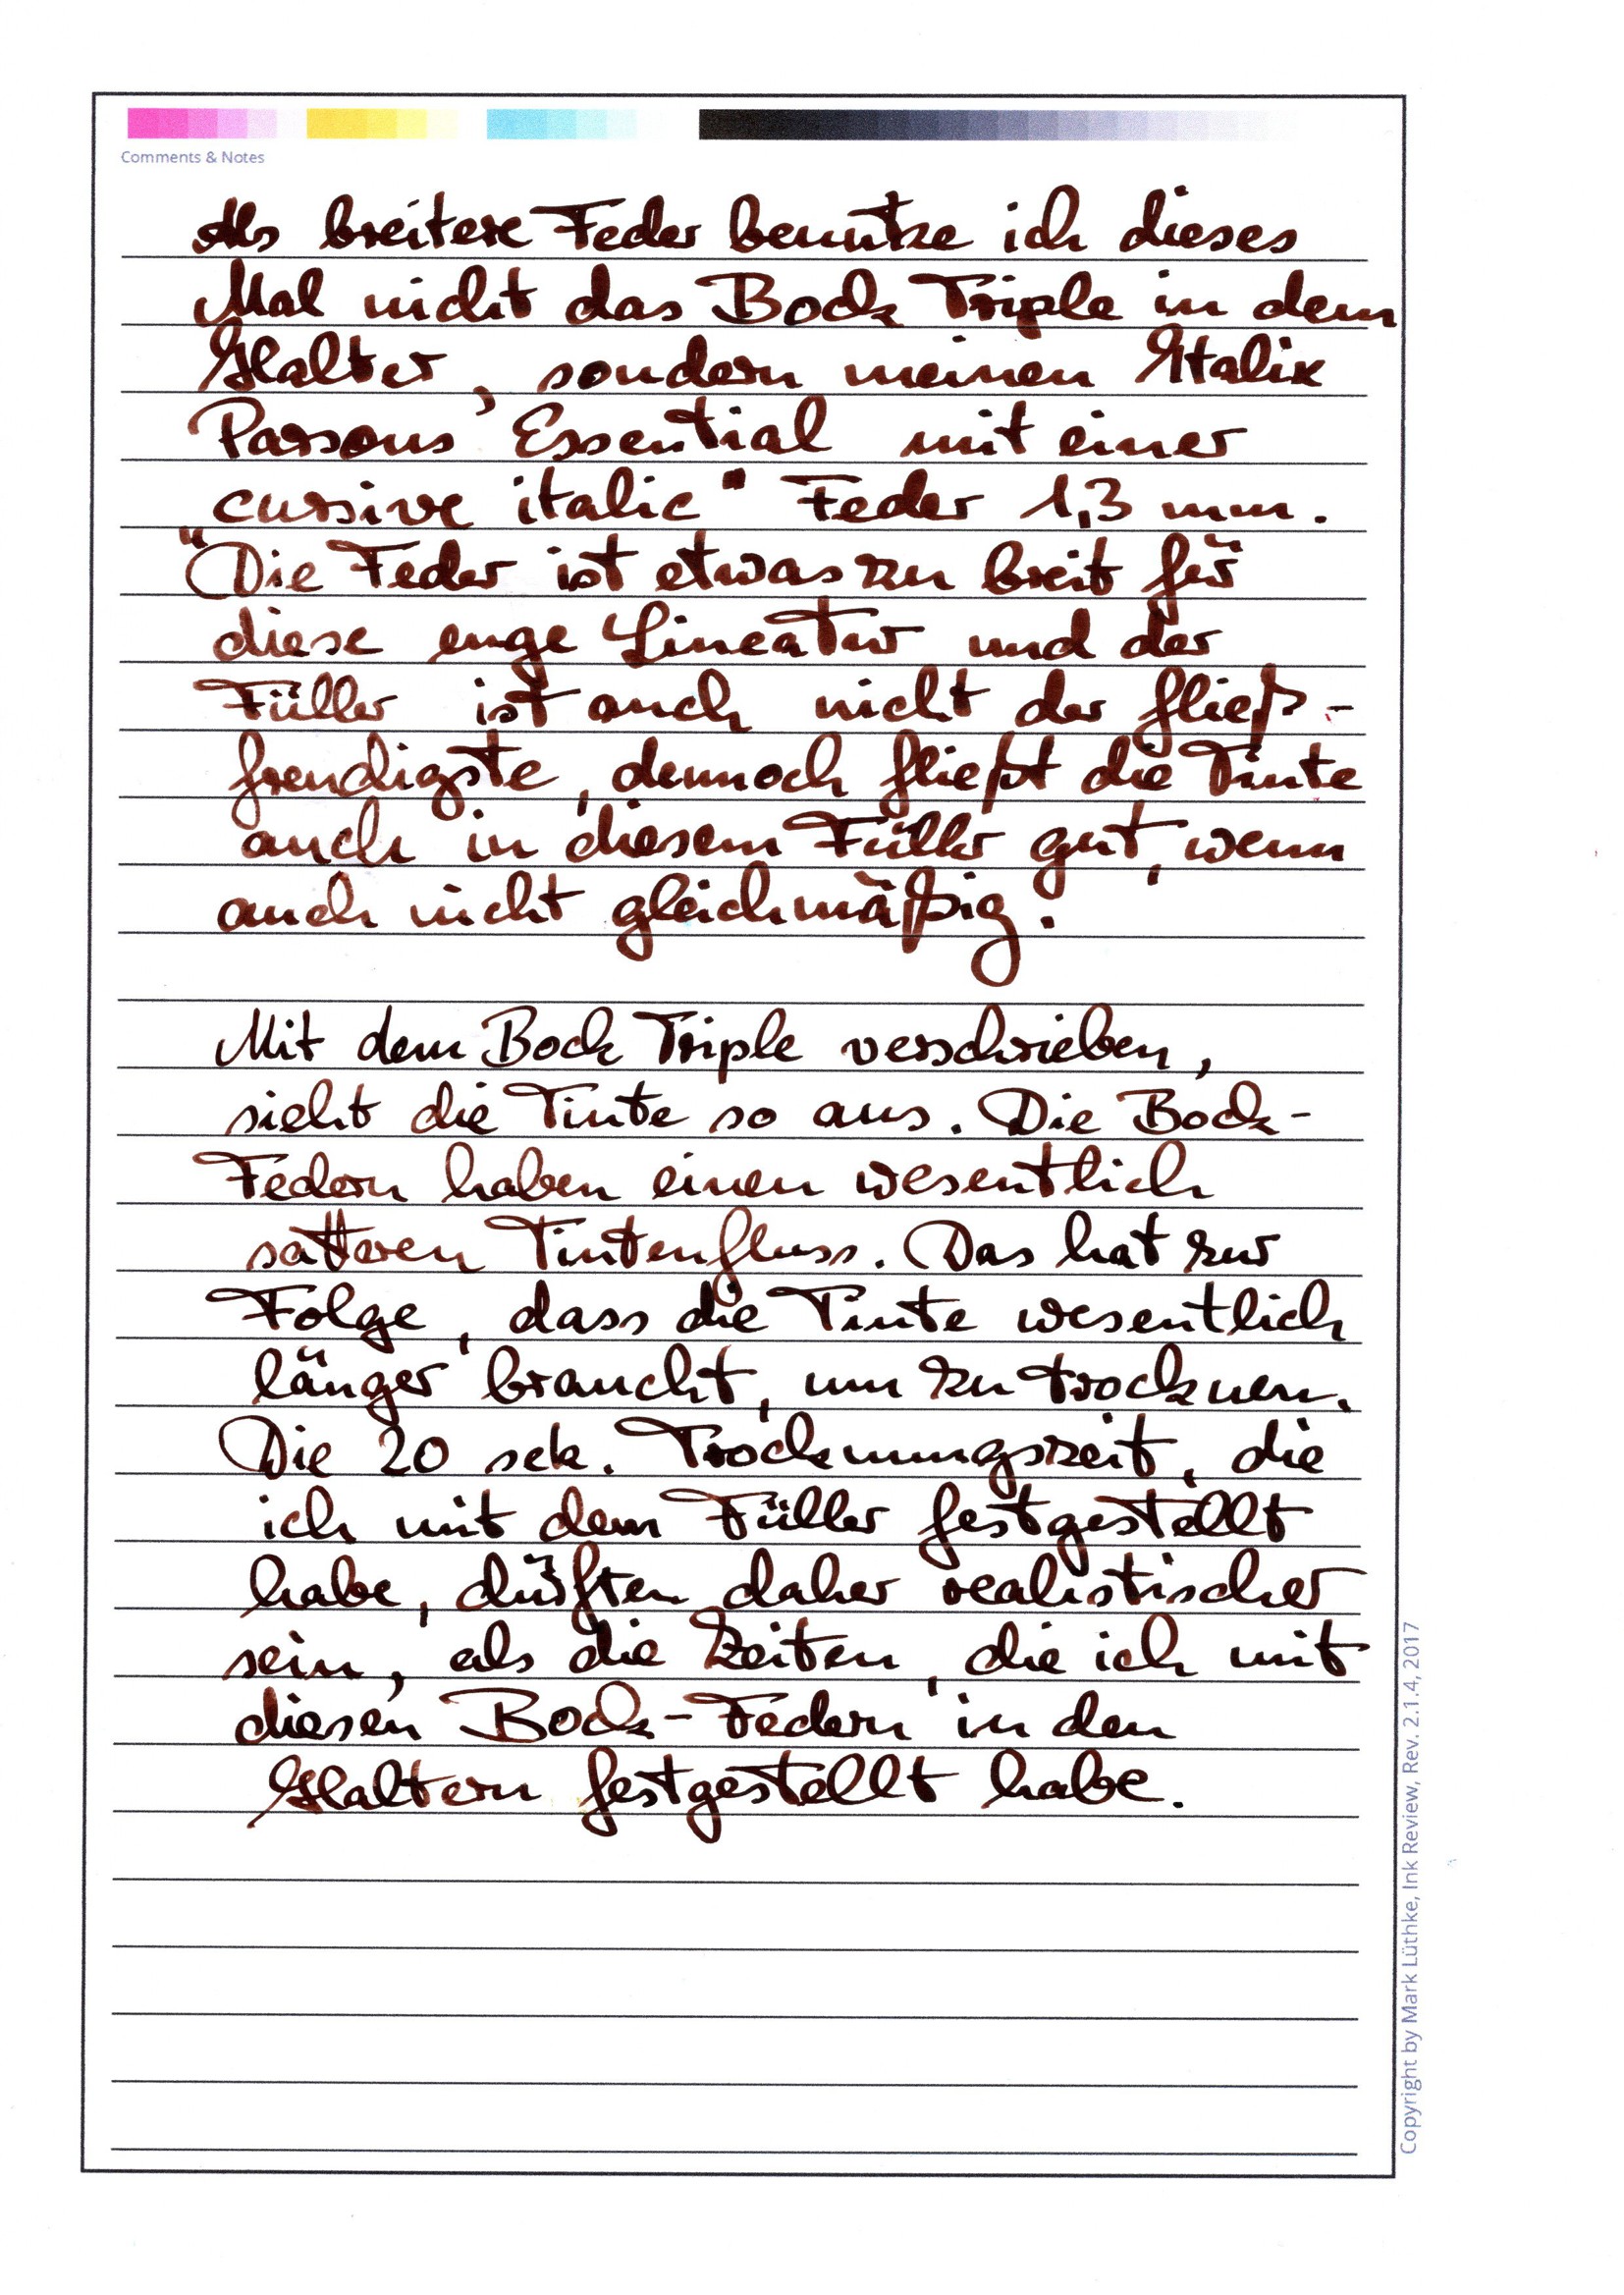 Comments & Notes
Als breitere Feder benutze ich dieses
Mal nicht das Bock Triple in dem
Halter, sondern meinen Italix
Parsons' Essential mit einer
„cursive italic" Feder 1,3 mm.
Die Feder ist etwas zu breit für
diese enge Lineatur und der
Füller ist auch nicht der fließ-
freudigste, dennoch fließt die Tinte
auch in diesem Füller gut, wenn
auch nicht gleichmäßig.
Mit dem Bock Triple verschrieben,
sieht die Tinte so aus. Die Bock-
Federn haben einen wesentlich
satteren Tintenfluss. Das hat zur
Folge, dass die Tinte wesentlich
länger braucht, um zu trocknen.
Die 20 sek. Trocknungszeit, die
ich mit dem Füller festgestellt
habe, dürften daher realistischer
sein, als die Zeiten, die ich mit
diesen Bock-Federn in den
Haltern festgestellt habe.
Copyright by Mark Lüthke, Ink Review, Rev. 2.1.4, 2017